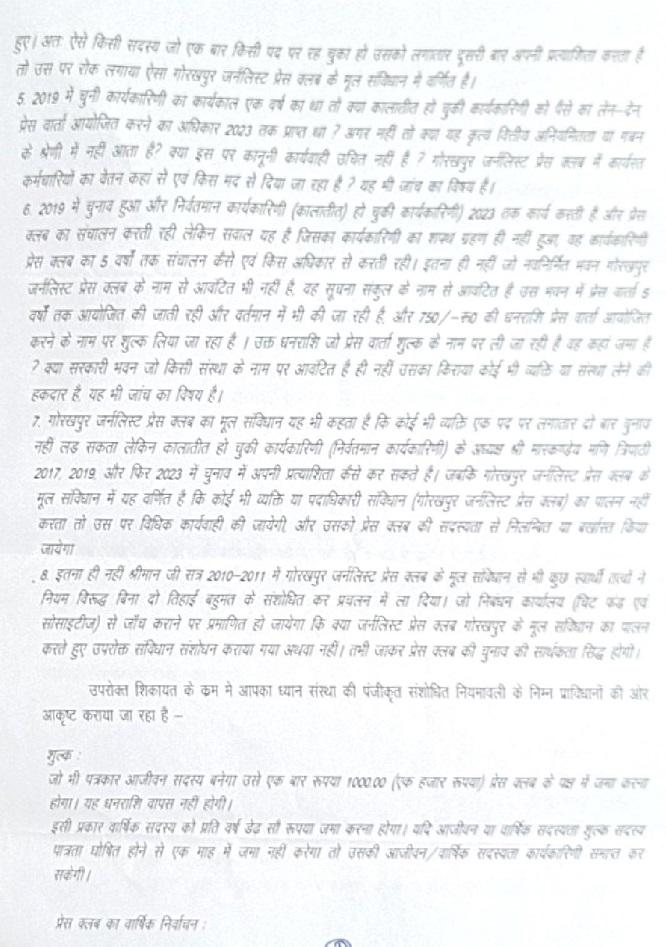 हुए। अतः ऐसे किसी सदस्य जो एक बार किसी पद पर रह चुका हो उसको लगातार दूसरी बार अपनी प्रत्याशिता करता है
तो उस पर रोक लगाया ऐसा गोरखपुर जर्नलिस्ट प्रेस क्लब के मूल संविधान में वर्णित है।
5. 2019 में चुनी कार्यकारिणी का कार्यकाल एक वर्ष का था तो क्या कालातीत हो चुकी कार्यकारिणी को पैसे का लेन–देन
प्रेस वार्ता आयोजित करने का अधिकार 2023 तक प्राप्त था ? अगर नहीं तो क्या यह कृत्य वित्तीय अनियमितता या गबन
के श्रेणी में नहीं आता है? क्या इस पर कानूनी कार्यवाही उचित नहीं है ? गोरखपुर जर्नलिस्ट प्रेस क्लब में कार्यरत
कर्मचारियों का वेतन कहां से एवं किस मद से दिया जा रहा है ? यह भी जांच का विषय है।
6. 2019 में चुनाव हुआ और निर्वतमान कार्यकारिणी (कालातीत) हो चुकी कार्यकारिणी) 2023 तक कार्य करती है और प्रेस
क्लब का संचालन करती रही लेकिन सवाल यह है जिसका कार्यकारिणी का शपथ ग्रहण ही नहीं हुआ, वह कार्यकारिणी
प्रेस क्लब का 5 वर्षों तक संचालन कैसे एवं किस अधिकार से करती रही। इतना ही नहीं जो नवनिर्मित भवन गोरखपुर
जर्नलिस्ट प्रेस क्लब के नाम से आवंटित भी नहीं है, वह सूचना संकुल के नाम से आवंटित है उस भवन में प्रेस वार्ता 5
वर्षों तक आयोजित की जाती रही और वर्तमान में भी की जा रही है, और 750/–रू0 की धनराशि प्रेस वार्ता आयोजित
करने के नाम पर शुल्क लिया जा रहा है । उक्त धनराशि जो प्रेस वार्ता शुल्क के नाम पर ली जा रही है वह कहां जमा है
? क्या सरकारी भवन जो किसी संस्था के नाम पर आवंटित है ही नहीं उसका किराया कोई भी व्यक्ति या संस्था लेने की
हकदार है, यह भी जांच का विषय है।
7. गोरखपुर जर्नलिस्ट प्रेस क्लब का मूल संविधान यह भी कहता है कि कोई भी व्यक्ति एक पद पर लगातार दो बार चुनाव
नहीं लड सकता लेकिन कालातीत हो चुकी कार्यकारिणी (निर्वतमान कार्यकारिणी) के अध्यक्ष श्री मारकण्डेय मणि त्रिपाठी
2017, 2019, और फिर 2023 में चुनाव में अपनी प्रत्याशिता कैसे कर सकते है। जबकि गोरखपुर जर्नलिस्ट प्रेस क्लब के
मूल संविधान में यह वर्णित है कि कोई भी व्यक्ति या पदाधिकारी संविधान (गोरखपुर जर्नलिस्ट प्रेस क्लब) का पालन नहीं
करता तो उस पर विधिक कार्यवाही की जायेगी, और उसको प्रेस क्लब की सदस्यता से निलम्बित या बर्खास्त किया
जायेगा
8. इतना ही नहीं श्रीमान जी सत्र 2010–2011 में गोरखपुर जर्नलिस्ट प्रेस क्लब के मूल संविधान से भी कुछ स्वार्थी तत्वों ने
नियम विरुद्ध बिना दो तिहाई बहुमत के संशोधित कर प्रचलन में ला दिया। जो निबंधन कार्यालय (चिट फंड एवं
सोसाइटीज) से जाँच कराने पर प्रमाणित हो जायेगा कि क्या जर्नलिस्ट प्रेस क्लब गोरखपुर के मूल संविधान का पालन
करते हुए उपरोक्त संविधान संशोधन कराया गया अथवा नहीं। तभी जाकर प्रेस क्लब की चुनाव की सार्थकता सिद्ध होगी।
उपरोक्त शिकायत के कम मे आपका ध्यान संस्था की पंजीकृत संशोधित नियमावली के निम्न प्राविधानों की ओर
आकृष्ट कराया जा रहा है –
शुल्क :
जो भी पत्रकार आजीवन सदस्य बनेगा उसे एक बार रूपया 1000.00 (एक हजार रूपया) प्रेस क्लब के पक्ष में जमा करना
होगा। यह धनराशि वापस नहीं होगी।
इसी प्रकार वार्षिक सदस्य को प्रति वर्ष डेढ़ सौ रूपया जमा करना होगा। यदि आजीवन या वार्षिक सदस्यता शुल्क सदस्य
पात्रता घोषित होने से एक माह में जमा नही करेगा तो उसकी आजीवन/वार्षिक सदस्यता कार्यकारिणी समाप्त कर
सकेगी।
प्रेस क्लब का वार्षिक निर्वाचन :